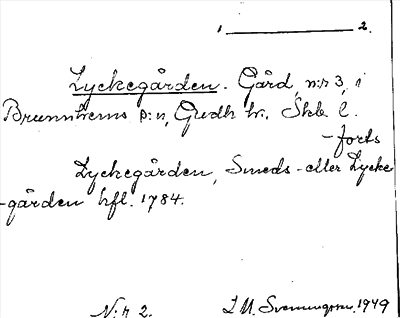 1 2.
Lyckegården. Gård, n:r 3, i
Brunnhems s:n, Gudh. hd. Skb. l.
- forts
Lyckegården, Smeds- eller Lycke
-gården hfl. 1784.
N:r 2. I.M. Svenningson 1949